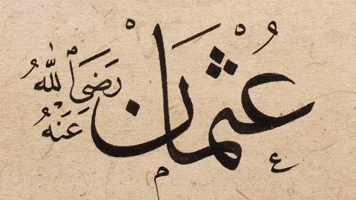 عُثْمَان رَضِيَ ٱللَّٰهُ عَنْهُ